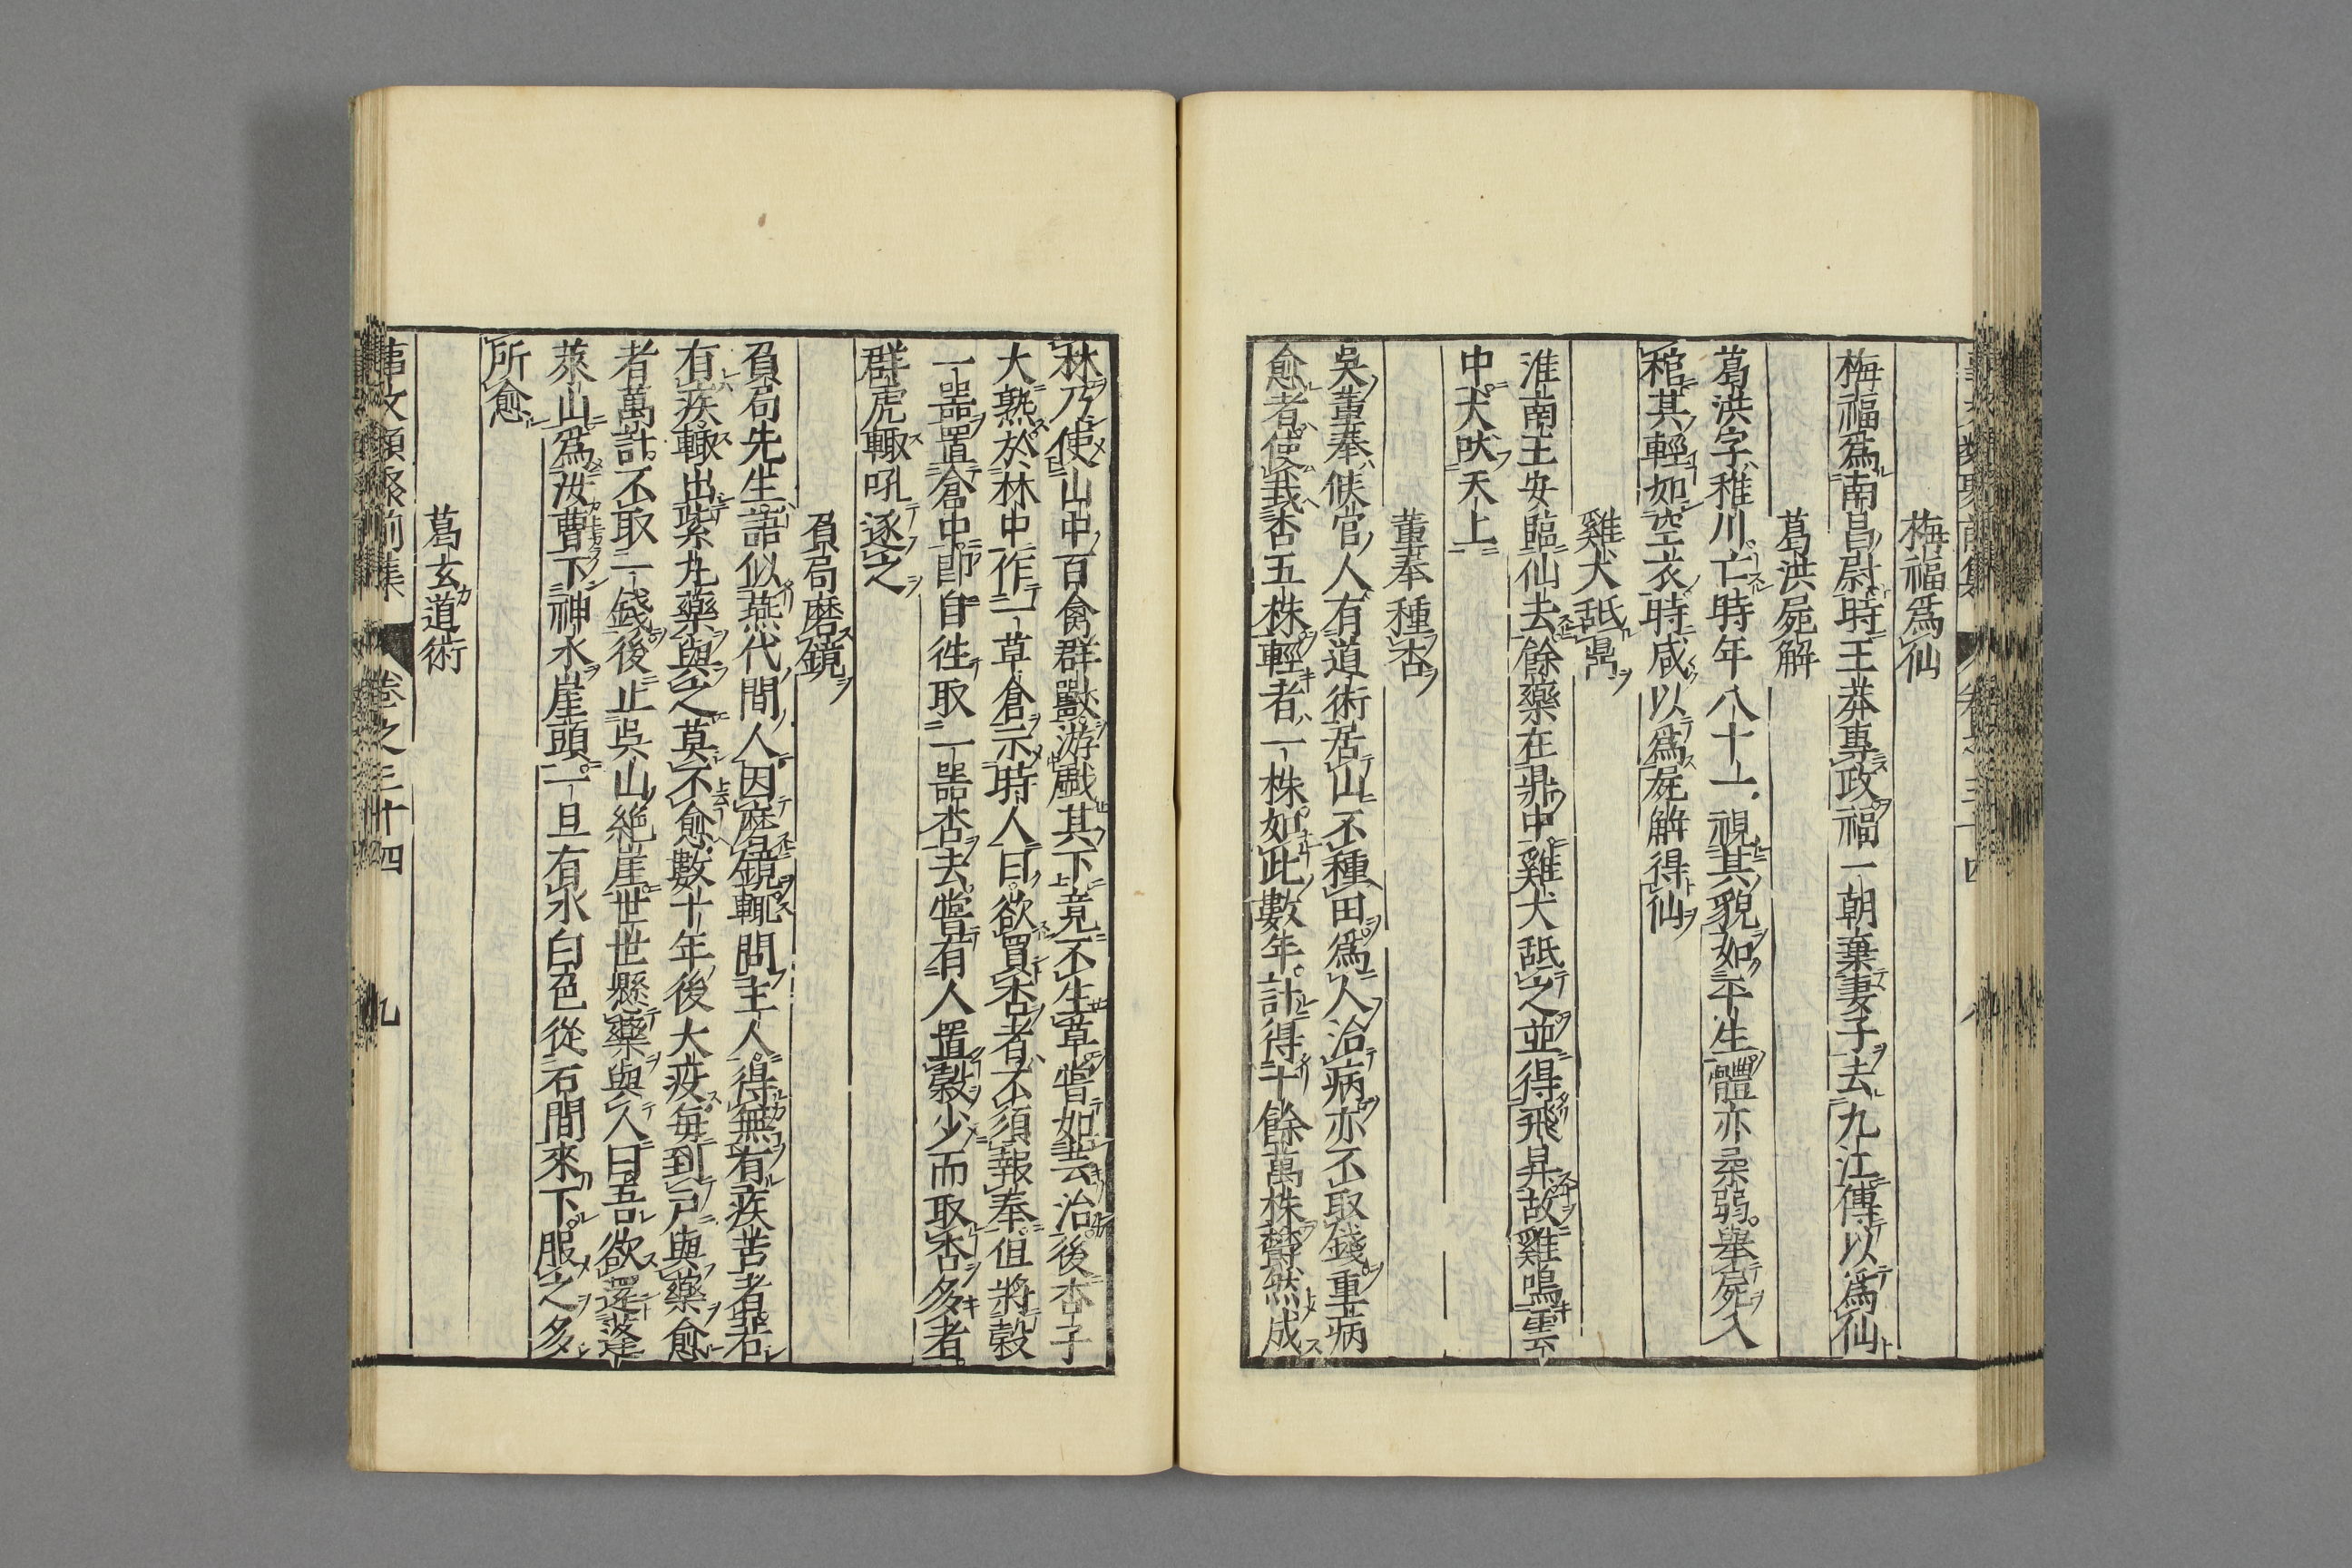 梅福爲仙
梅福爲南昌尉時王莽專政福一朝棄妻子去九江傳以爲仙
葛洪屍解
葛洪字稚川亡時年八十一視其貌如平生體亦柔弱舉屍入
棺其輕如空衣時咸以爲屍解得仙
雞犬舐鼎
淮南王安臨仙去餘藥在鼎中雞犬舐之並得飛昇故雞鳴雲
中犬吠天上
董奉種杏
吳董奉候官人有道術居山不種田爲人治病亦不取錢重病
愈者使栽杏五株輕者一株如此數年計得十餘萬株欝然成
林乃使山中百禽群獸游戲其下竟不生草嘗如芸治後杏子
大熟於林中作一草倉示時人曰欲買杏者不須報奉但將穀
一器置倉中即自徃取一器杏去嘗有人置穀少而取杏多者
群虎輙吼逐之
負局磨鏡
負局先生語似燕代間人因磨鏡輙問主人得無有疾苦者若
有疾輙出紫丸藥與之莫不愈數十年後大疫每到戸與藥愈
者萬計不取一錢後止吳山絶崖世世懸藥與人曰吾欲還蓬
萊山爲汝曹下神水崖頭一旦有水白色從石間來下服之多
所愈
葛玄道術
事文類聚前集 卷之三十四 九